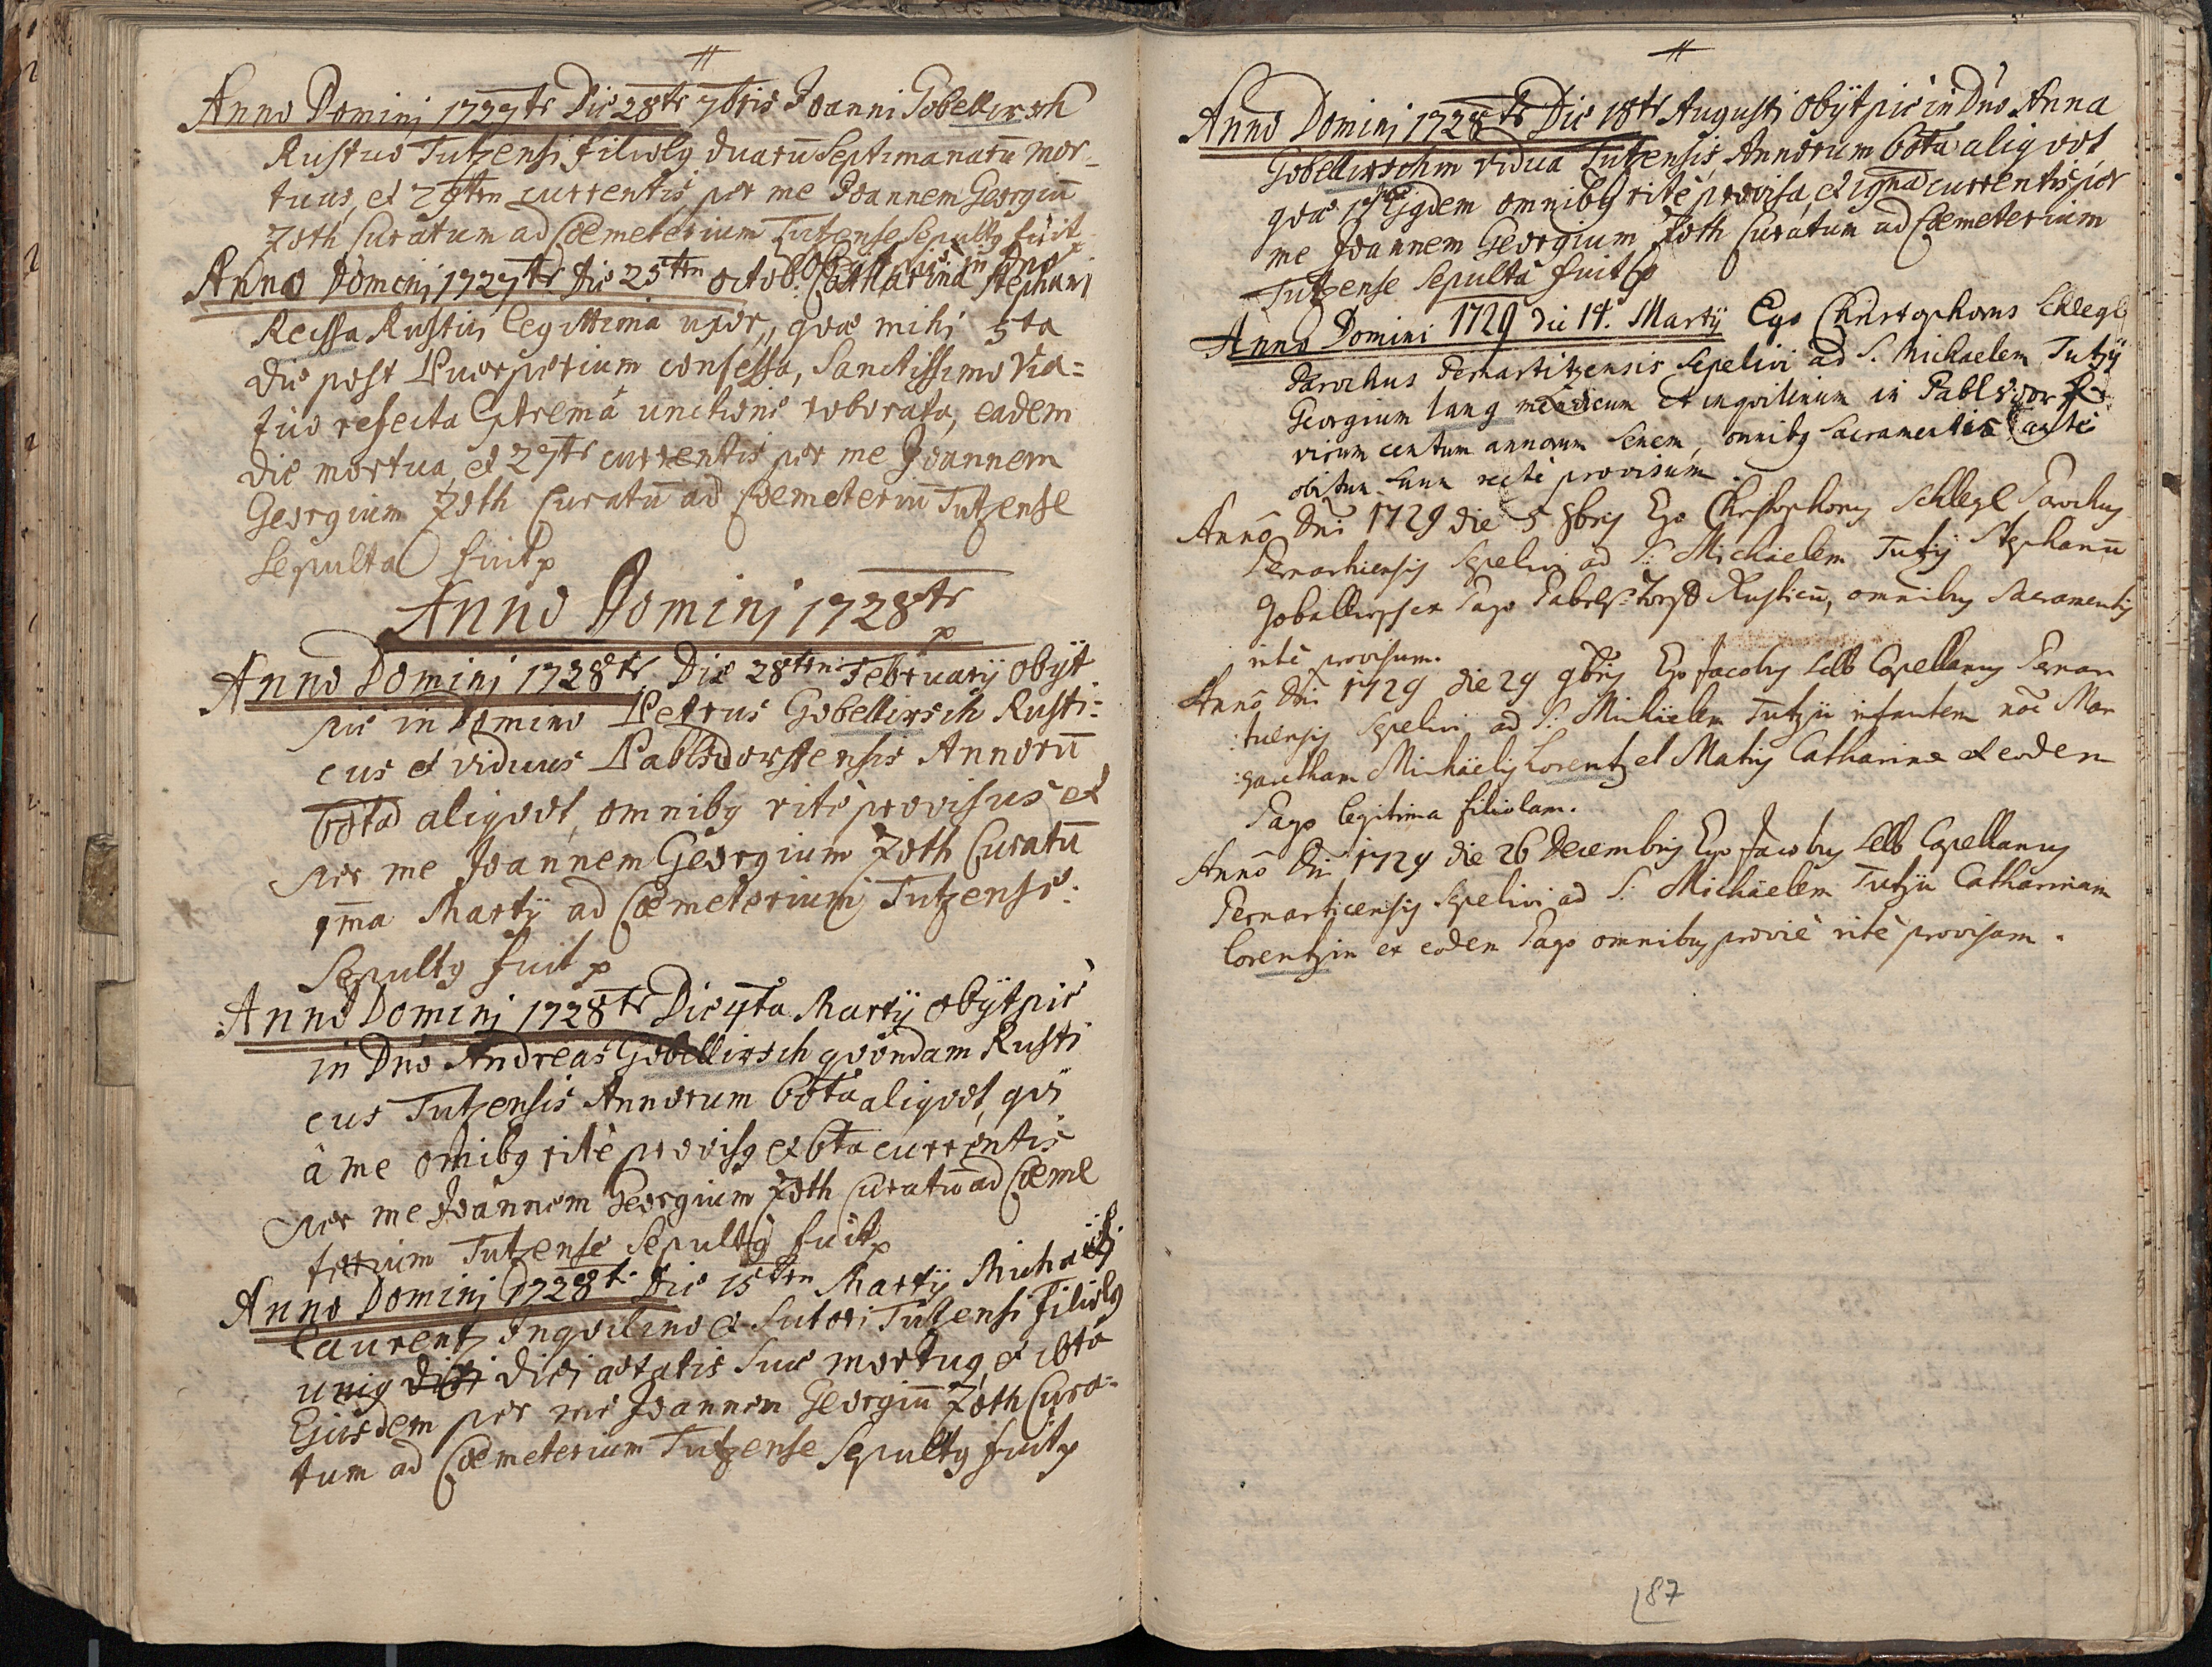 Anno Dominj 1727te Die 28te 7bris Joanni Gobellirsch
Rustico Tutzensi filiolg duarū Septimanarū mor-
tuus, et 29ten currentis per me Joannem Georgiū
Zoth Curatum ad Cœmeterium Tutzense Sepultg fuit
obijt pie in Dno
Anno Domini 1727te Die 25ten octob: Catharina Stephani
Reissa Rustici legittima uxor, qvæ mihi 5ta
die post Puerperium confessa, Sanctissimo Via=
tico refecta Extrema unctione roborata, eadem
die mortua, et 27te currentis per me Joannem
Georgium Zoth Curatū ad Cœmeteriū Tutzense
Sepulta fuit
Anno Dominj 1728te
Anno Dominj 1728te Die 28ten Februarij obijt
pie in Domino Petrus Gobellirsch Rusti=
cus et viduus Pablsdorffensis Annorū
60ta aliqvot, omnibg ritè provisus et
per me Joannem Georgium Zoth Curatū
1ma Martij ad Cœmeterium Tutzense:
Sepultg fuit
Anno Dominj 1728te Die 4ta Martij obijt pie
in Dno Andreas Gobellirsch qvondam Rusti
cus Tutzensis Annorum 60ta aliqvot, qvi
â me omibg ritè provisg et 6ta currentis
per me Joannem Georgium Zoth Curatū ad Cœme
terium Tutzense Sepultg fuit
Anno Dominj 1728te Die 15ten Martij Michaeli
Laurentz Inqvilino et Sutori Tutzensi filiolg
unig diei ætatis suæ mortug, et 16ta
Ejusdem per me Joannem Georgiū Zoth Cura=
tum ad Cœmeterium Tutzense Sepultg fuit
Anno Dominj 1728te Die 18te Augusti obijt pie in Dno Anna
Gobellirschin vidua Tutzensis, Annorum 60ta aliqvot
qvæ omnibg ritè provisa, et currentis per
me Joannem Georgium Zoth Curatum ad Cœmeterium
Tutzense Sepulta fuit
Anno Domini 1729 die 14. Martij Ego Christophorus Schlegl
Parochus Pernartitzensis sepelivi ad S. Michaelem Tutzij
Georgium Lang mendicum et inqvilinum in Pablsdorf
virum centum annorum senem, omnibg sacramentis ante
obitum suum rectè provisum.
Anno Dni 1729 die 5 8bris Ego Christophorg Schlegl Parochg
Pernarticensis sepelivi ad S: Michaelem Tutzij Stephanū
Goballirsch ex Pago Rusticū, omnibg Sacramentis
ritè provisum.
Anno Dni 1729 die 29 9bris Ego Jacobg Capellang Pernar
:ticensis sepelivi ad S: Michäelem Tutzij infantem noē Mar
:garetham Michäelis Lorentz et Matris Catharina ex eodem
Pago legitima filiolam.
Anno Dni 1729 die 26 Decembris Ego Jacobg Capellang
Pernarticensis sepelivi ad S: Michäelem Tutzij Catharinam
Lorentzin ex eodem Pago omnibg ritè provisam.
87